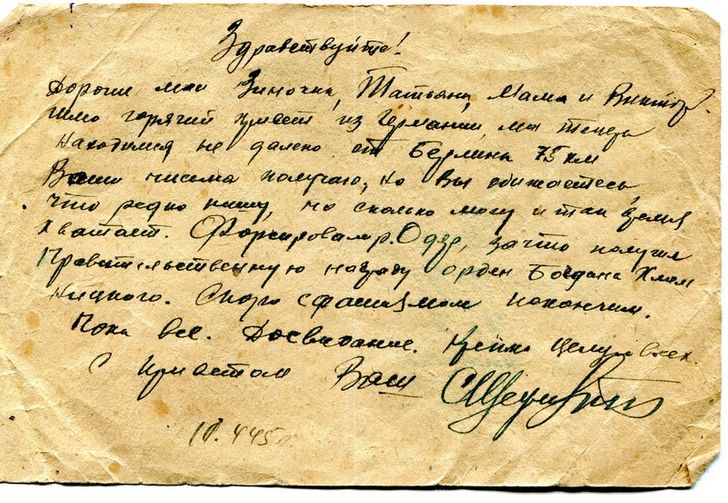 Здравствуйте!
Дорогие мои Зиночка, Татьяна, Мама и Виктор.
Шлю горячий привет из Германии, мы теперь
находимся не далеко от Берлина 75 км
Ваши письма получаю, но Вы обижаетесь,
что редко пишу, но сколько могу и так время
хватает. Форсировал р. Одер, за что получил
Правительственную награду орден Богдана Хмель
ницкого. Скоро с фашизмом покончим.
Пока все. Досвидание. Крепко целую всех.
С приветом Ваш
10.4.45г.